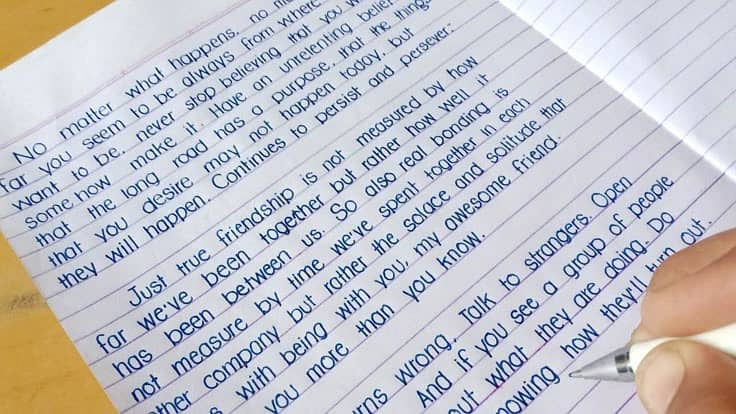 No matter what happens, no
far you seem to be always from where
want to be, never stop believing that you
somehow make it. Have an unrelenting belief
that the long road has a purpose, that the things
that you desire may not happen today, but
they will happen. Continues to persist and persever.
Just true friendship is not measured by how
far we've been together but rather how well it
has been between us. So also real bonding is
not measure by time we've spent together in each
other company but rather the solace and solitude that
with being with you, my awesome friend.
you more than you know.
wrong. Talk to strangers. Open
And if you see a group of people
out what they are doing. Do
how they'll turn out.